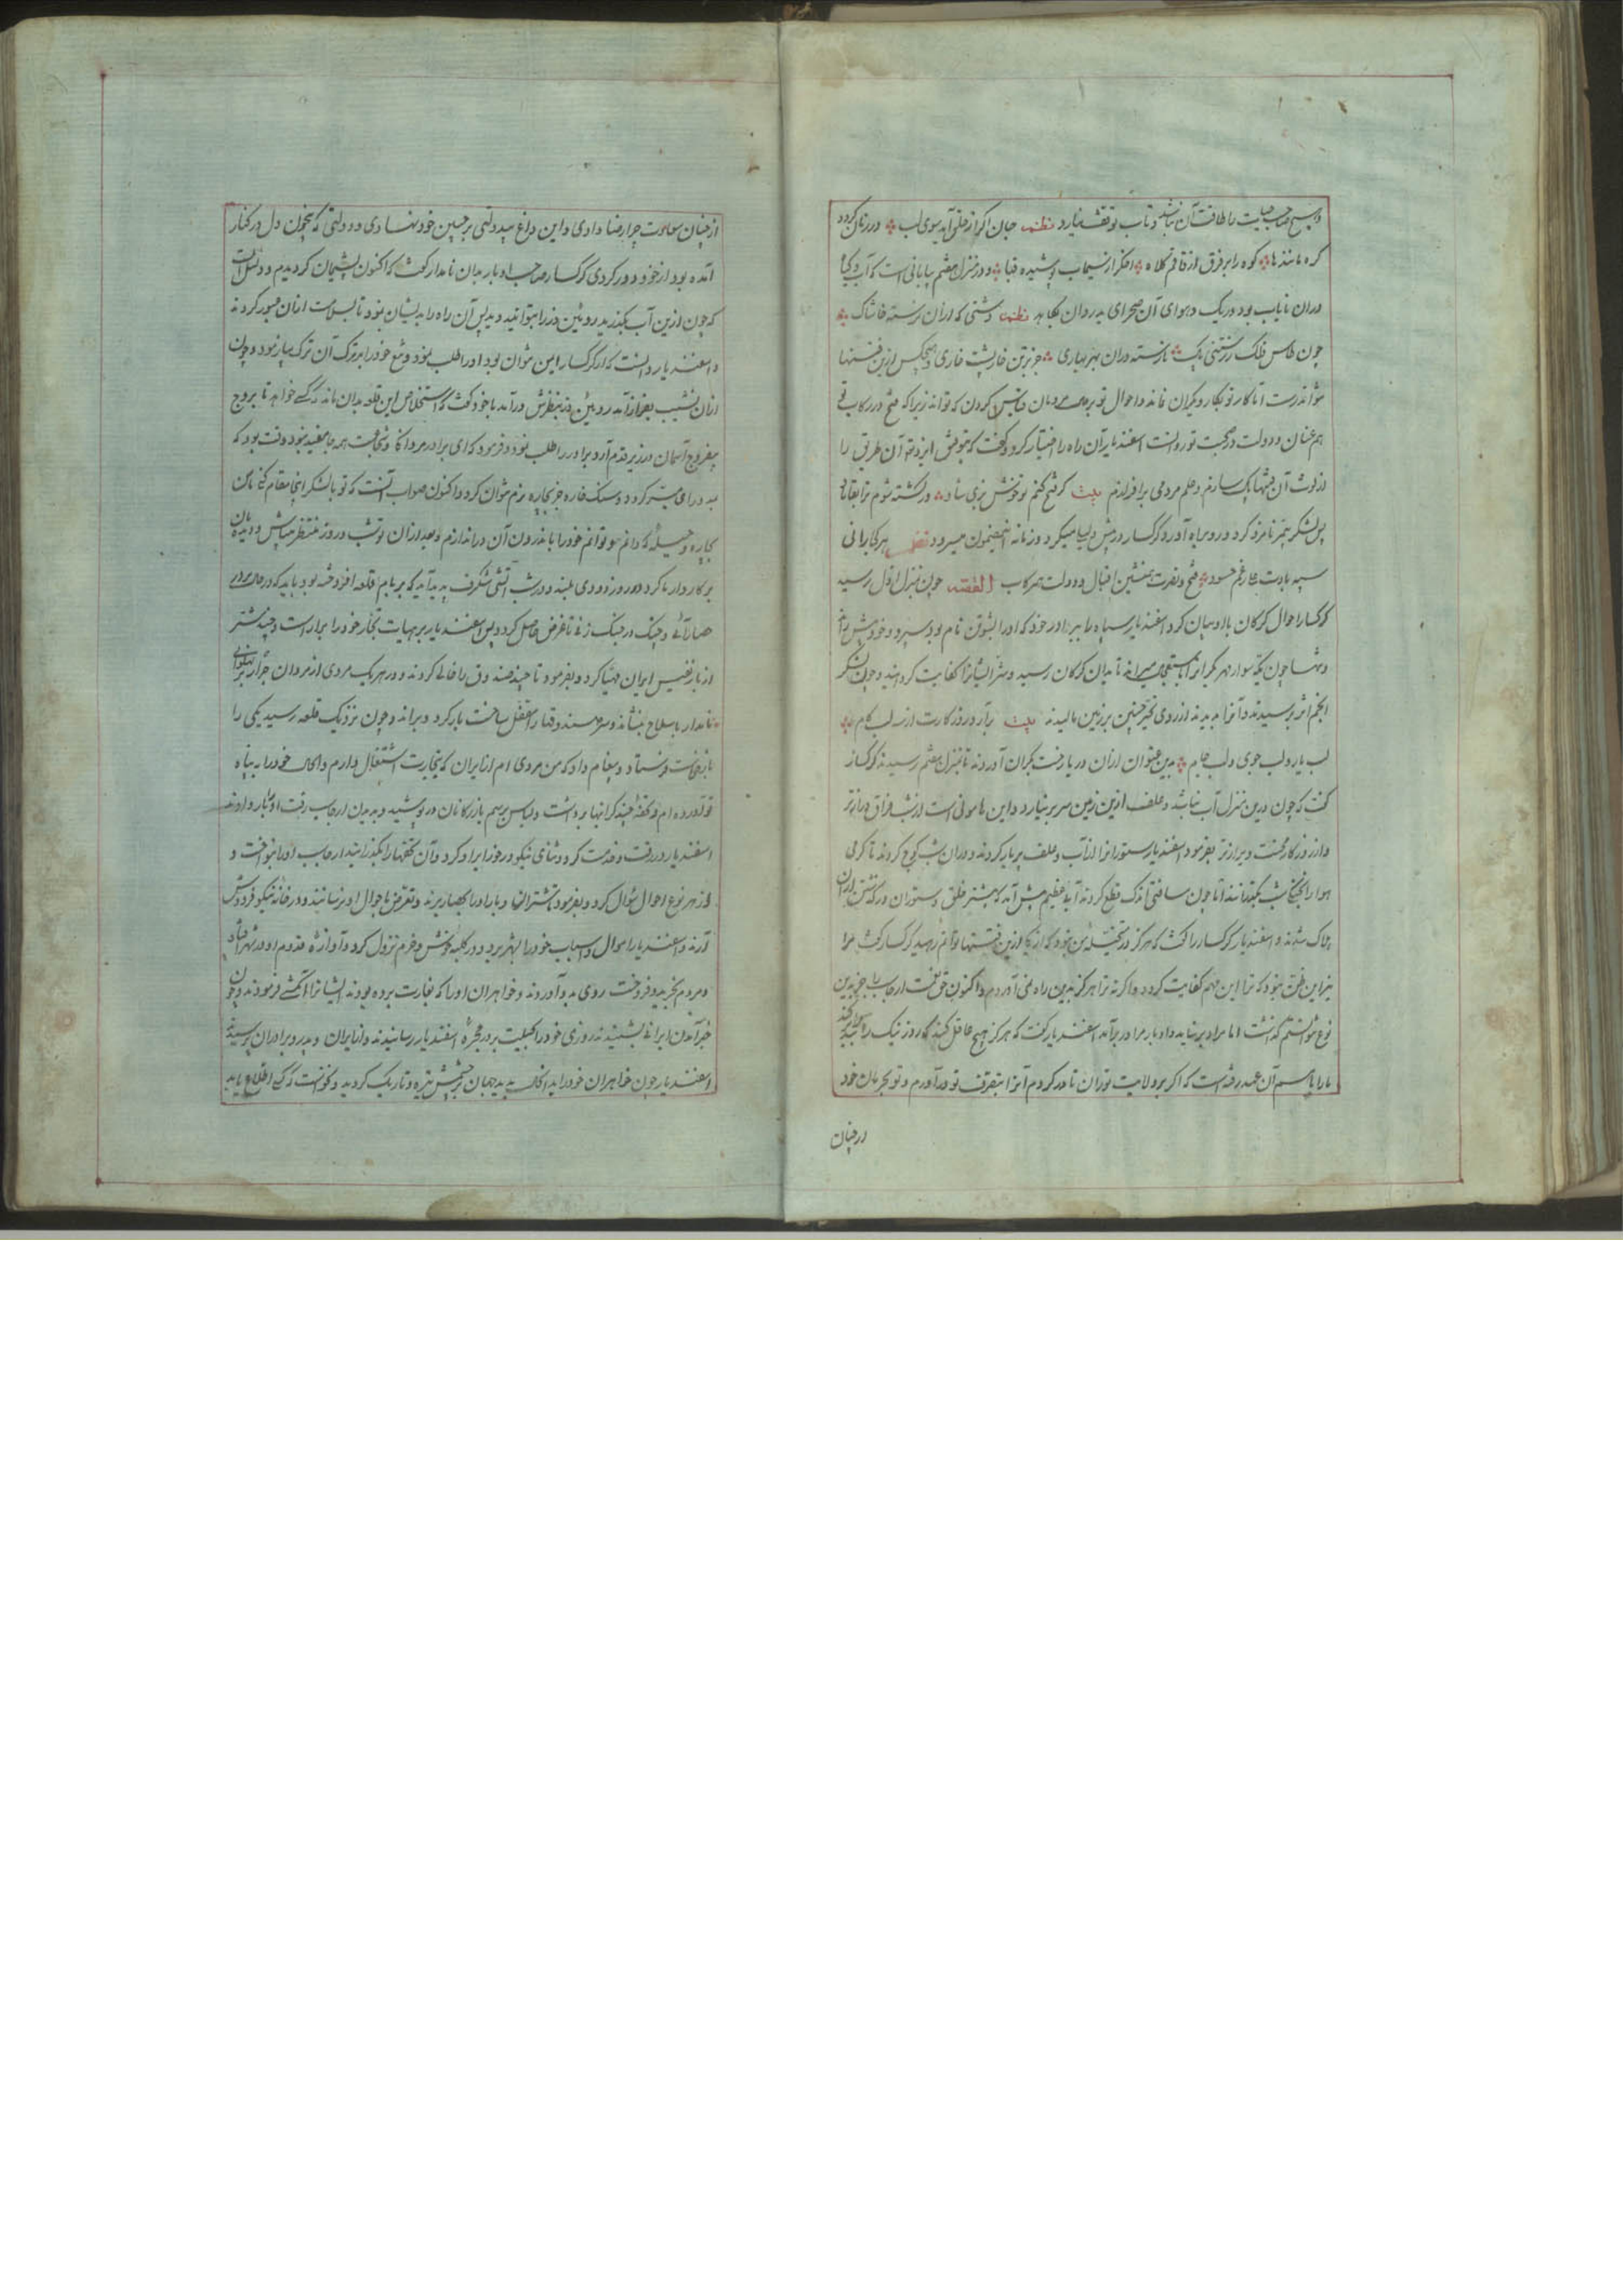 و هیچ صاحب حیات را طاقت آن نباشد و تاب توقف نیارد نظم جان اگر از حلق آید سوی لب در زمان گردد
کره مانند ها کوه را بر فرق از قاقم کلاه اخکر از سیماب پوشیده قبا و در منزل هفتم بیابانی است که آب و گیا
دران نایاب بود و ریک و هوای آن صحرای بدروان بکاهد نظم دشتی که ازان نرسته خاشاک
چون طاس فلک ز رستنی پاک نارسته دران بهر بهاری جز بر تن خارپشت خاری و هیچکس ازین
اما کار تو بکار دیکران نماند و احوال تو بر مردمان قیاس کردن که تواند زیرا که فتح در رکاب
هم عنان و دولت در صحبت تو روانست اسفندیار آن راه را اختیار کرد و گفت که بتوفیق ایزد تعالی آن طریق را
از لوث آن پاک سازم و علم مردمی برافرازم بیت گر فتح کنم تو خوش بزی شاد ور کشته شوم ترا بقا باد
پس لشکر نامزد کرد و رو براه آورد و گرگسار در پیش میکرد و زمانه این مضمون میرود نظم بهر کجا رانی
سپه بادت برغم حسود فتح و نصرت همنشین اقبال و دولت هم رکاب القصه چون بمنزل اول رسید
گرگسار احوال گرگان با او بیان کرد اسفندیار سپاه را ببرادر خود که او را بشوتن نام بود سپرد و خود پیش راند
و تنها چون یکه سوار مهر میراند تا بدان گرگان رسید و شر ایشانرا کفایت گردانید و چون لشکر
انجم اثر برسیدند و آنرا بدیدند از روی تحیر جبین بر زمین مالیدند بیت برآر در روز کارت از سه لب کام
لب یار و لب جوی و لب جام بدین عنوان ازان در یا رخت بکران آوردند تا بمنزل هفتم رسیدند گرگسار
گفت که چون درین منزل آب نباشد و علف ازین زمین سر بر نیارد و این هامونی است از شب فراق درازتر
و از روزکار محنت ویرانتر بفرمود اسفندیار ستورانرا از آب و علف پر بار کردند و دران شب کوچ کردند تا گرمی
هوا را بخنکی شب بگذرانند اما چون مسافتی اندک قطع کردند آبی عظیم پیش آمد که بیشتر خلق و ستوران در گذشتن ازان
هلاک شدند و اسفندیار گرگسار را گفت که هرگز در تخیل من نبود که از ازین توانم رهید گرگسار گفت مرا
نیز این ظن نبود که ترا این مهم کفایت گردد و اگر نه ترا هرگز بدین راه نمی آوردم و اکنون حق نعمت ارجاسب را جز بدین
نوع نتوانستم گذاشت اما مراد بر نیاید و ادبار مرا در برآمد اسفندیار گفت که هرگز هیچ عاقل کند که روز نیک را بد کند
ما را با سم آن عهد رفته است که اگر بر ولایت توران قادر گردم آنرا بتصرف تو در آورم و تو بحرمان خود
از چنان
از چنان سعادت چرا رضا دادی و این داغ بیدولتی بر جبین خود نهادی و دولتی که چون دل در کنار
آمده بود از خود دور کردی گرگسار صاحب ادبار بدان نامدار گفت که اکنون پشیمان گردیدم و دلیل آنست
که چون ازین آب بگذرید رویین دز را بتوانید دید پس آن راه را بدیشان نمود تا بسلامت ازان عبور کردند
و اسفندیار دانست که از گرگسار ایمن نتوان بود او را طلب نمود و تیغ خود را بر ترک آن ترک بیازمود و چون
ازان نشیب بفراز آمد رویین دز بنظرش درآمد با خود گفت که استخلاص این قلعه بدان ماند که کسی خواهد تا بروج
آسمان در زیر قدم آرد برادر را طلب نمود و فرمود که ای برادر مردانگی و شجاعت همه جا مفید نبود وقت بود که
به رای میسر گردد و سنگ خاره جز بچاره نرم نتوان کرد و اکنون صواب آنست که تو با لشکر اینجا مقام کنی تا من
بچاره و حیله که دانم و توانم خود را باندرون آن در اندازم و بعد ازان تو شب و روز منتظر میباش و دیده بان
بر کار دار تا گردد در روز دودی بلند و در شب آتشی شگرف پدید آید که بر بام قلعه افروخته بود باید که در حال
حصار آئی و چنگ در جنگ زنی تا غرض حاصل گردد پس اسفندیار بر هیات تجار خود را براراست و چند شتر
از بار نفیس ایران مهیا کرد و بفرمود تا چند صندوق را خالی کردند و در هر یک مردی از مردان جرار
نامدار با سلاح بنشاند و سر صندوقها را قفل ساخت بار کرد و براند و چون نزدیک قلعه رسید یکی را
بازخواست فرستاد و پیغام داد که من مردی ام از ایران که بتجارت اشتغال دارم و اکنون خود را به پناه
تو آورده ام و تحفه چند گرانبها برداشت و لباس برسم بازرکانان در پوشید و بدیدن ارجاسب رفت او را بار دادند
اسفندیار در رفت و خدمت کرد و ثنای نیکو در خور ایراد کرد و آن تحفها را بگذرانید ارجاسب او را بنواخت و
از هر نوع احوال سؤال کرد و بفرمود تا شتران و بار او را بحصار برند و تعرض باحوال او نرسانند و در خانه نیکو فرود
آرند و اسفندیار اموال و اسباب خود را بشهر برد و در کلبه خوش و خرم نزول کرد و آوازه قدوم او در شهر افتاد
و مردم بخرید و فروخت روی بدو آوردند و خواهران او را که بغارت برده بودند ایشانرا آبکشی فرمودند و چون
خبر آمدن ایرانی بشنیدند روزی خود را بحیلت بر در حجره اسفندیار رسانیدند و از ایران و پدر و برادران پرسیدند
اسفندیار چون خواهران خود را بدانحال بدید جهان بر چشمش تیره و تاریک گردید و نخواست که کسی اطلاع یابد